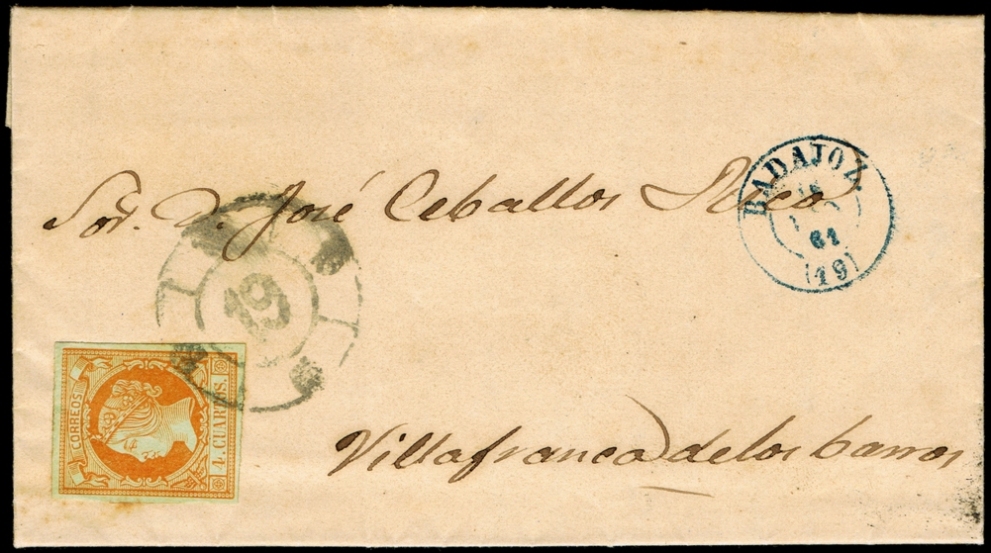 Sor. D. José Ceballos
BADAJOZ
61
(19)
19
CORREOS
4. CUARTOS.
Villafranca de los barros